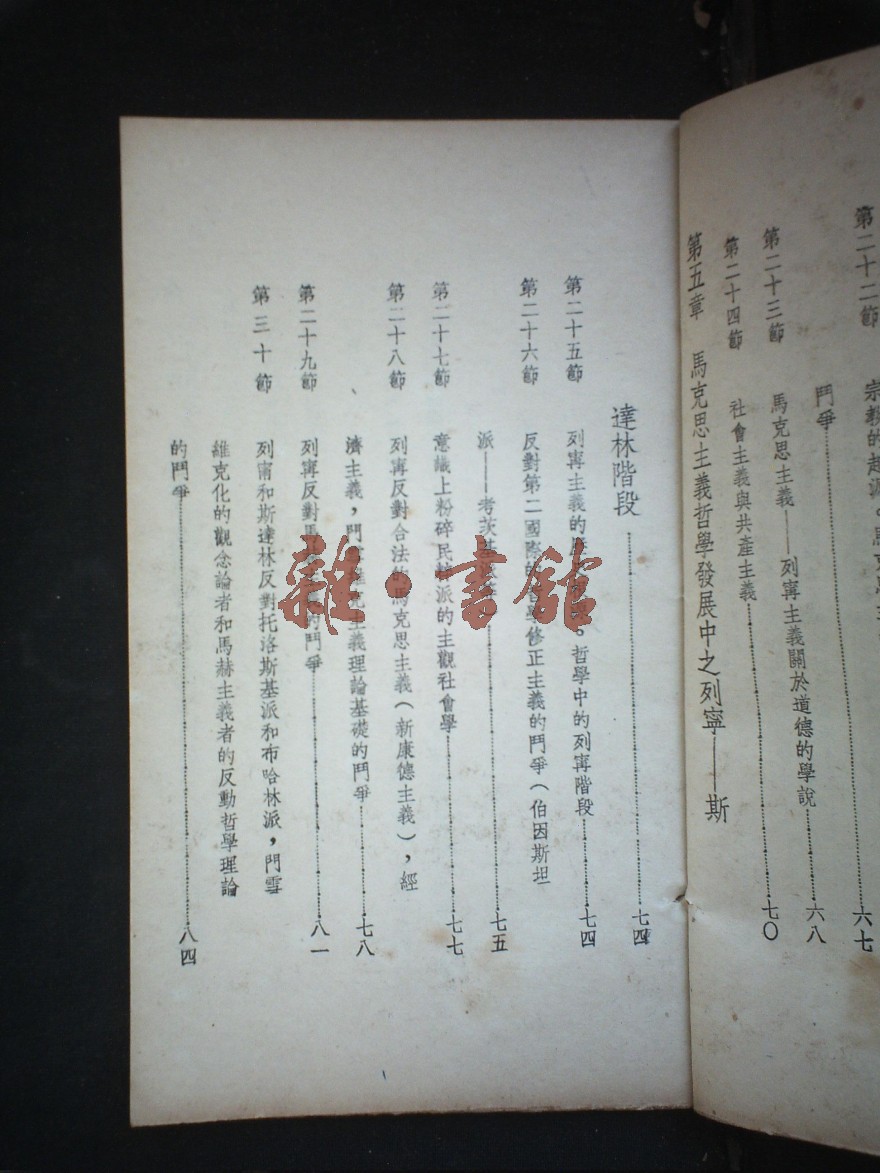 第二十二節 宗教的起源。馬克思主
鬥爭 六七
第二十三節 馬克思主義——列寧主義關於道德的學說 六八
第二十四節 社會主義與共產主義 七〇
第五章 馬克思主義哲學發展中之列寧——斯
達林階段 七四
第二十五節 列寧主義的 哲學中的列寧階段 七四
第二十六節 反對第二國際的 學修正主義的鬥爭(伯因斯坦
派——考茨基 七五
第二十七節 意識上粉碎民 派的主觀社會學 七七
第二十八節 列寧反對合法的馬克思主義(新康德主義),經
濟主義,門 主義理論基礎的鬥爭 七八
第二十九節 列寧反對馬 的鬥爭 八一
第三十節 列甯和斯達林反對托洛斯基派和布哈林派,門雪
維克化的觀念論者和馬赫主義者的反動哲學理論
的鬥爭 八四
雜·書館